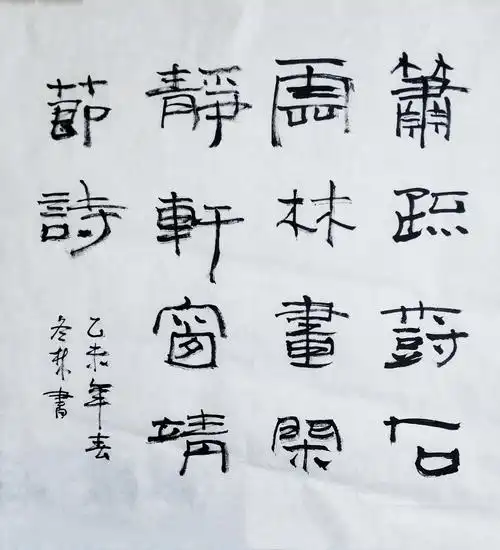 簫疏樹石
雲林畫閑
靜軒窗靖
節詩
乙未年春
冬林書